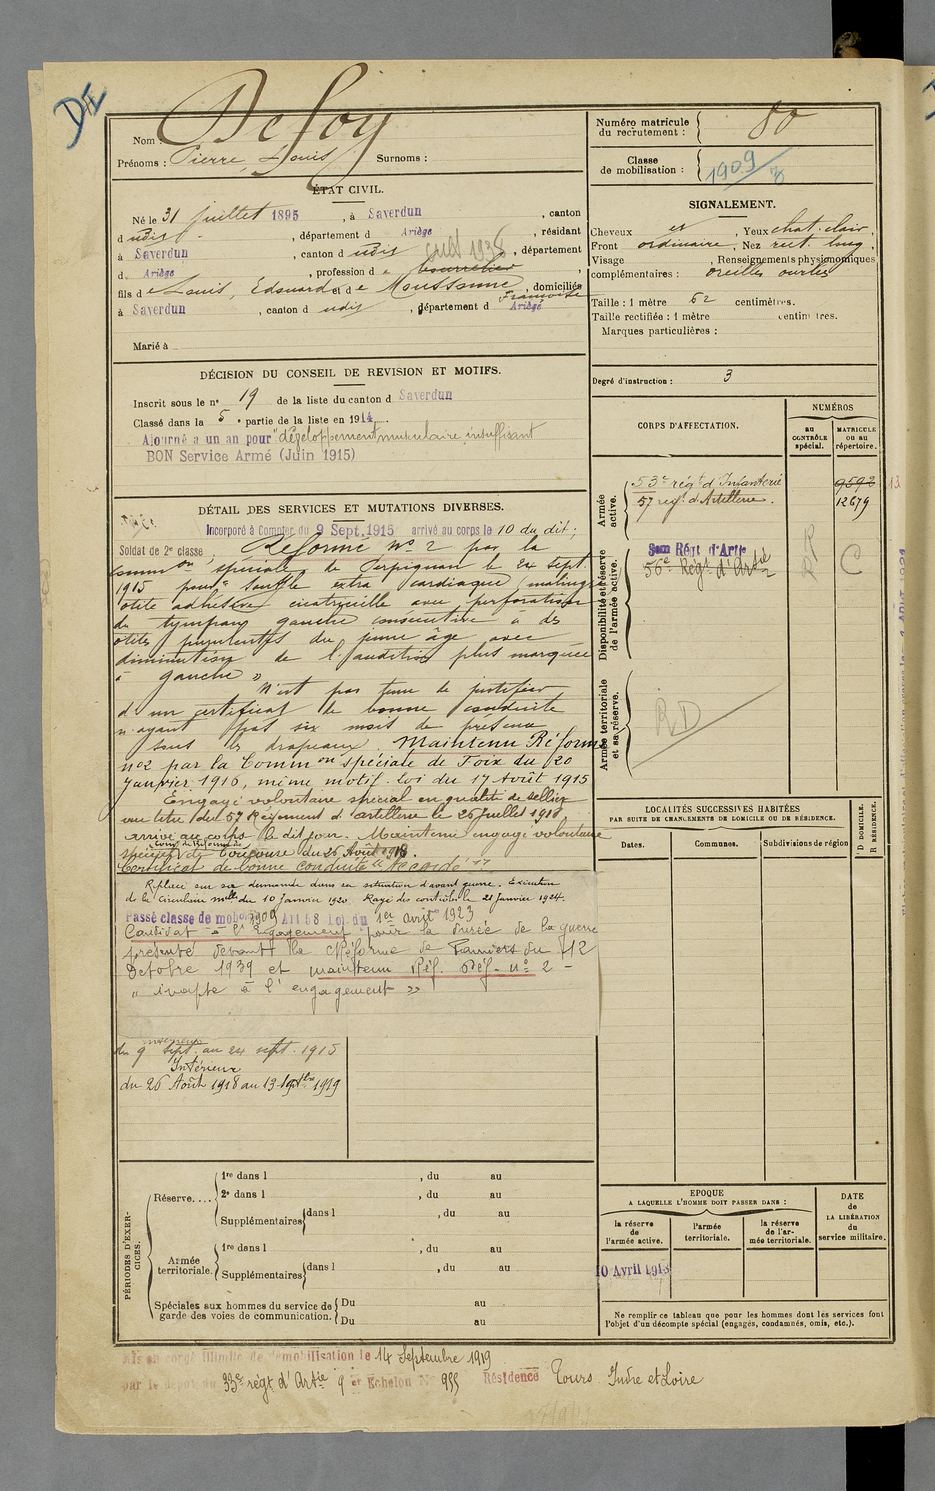 DE
Nom : Defoy
Prénoms : Pierre, Louis Surnoms :
ÉTAT CIVIL.
Né le 31 juillet 1895, à Saverdun, canton
d udit, département d Ariège, résidant
à Saverdun, canton d udit, département
d Ariège, profession d e bourrelier
fils d e Louis, Edouard et d e Moussonne Françoise, domiciliés
à Saverdun, canton d udit, département d Ariège
Marié à
DÉCISION DU CONSEIL DE REVISION ET MOTIFS.
Inscrit sous le n° 19 de la liste du canton d Saverdun
Classé dans la 5e partie de la liste en 1914.
Ajourné à un an pour "développement musculaire insuffisant
BON Service Armé (Juin 1915)
DÉTAIL DES SERVICES ET MUTATIONS DIVERSES.
Incorporé à Compter du 9 Sept. 1915 arrivé au corps le 10 du dit ;
Soldat de 2e classe ; Réformé N° 2 par la
Common spéciale de Perpignan le 24 sept.
1915 pour "souffle extra cardiaque, malingre
otite adhésive cicatricielle avec perforation
du tympan gauche consécutive à des
otites purulentes du jeune âge avec
diminution de l'audition plus marquée
à gauche »
N'est pas tenu de justifier
d'un certificat de bonne conduite
n'ayant pas six mois de présence
sous les drapeaux. Maintenu Réformé
n°2 par la Common spéciale de Foix du 20
Janvier 1916, même motif. loi du 17 Août 1915
Engagé volontaire spécial en qualité de sellier
au titre du 57 Régiment d'artillerie le 26 Juillet 1918
arrivé au corps le dit jour. Maintenu engagé volontaire
spécial Comon de Réforme de Toulouse du 26 Août 1918.
Certificat de bonne conduite "Accordé"
Replacé sur sa demande dans sa situation d'avant guerre. Exécution
de la Circulaire mlle du 10 janvier 1920. Rayé des contrôles le 21 Janvier 1924.
Passé classe de mobon 1909 Art 58 Loi du 1er avril 1923
Candidat à l'Engagement pour la durée de la guerre
présenté devant la C Réforme de Pamiers du 12
Octobre 1939 et maintenu Réf. Déf. n° 2 –
« inapte à l'engagement »
Intérieur
du 9 sept. au 24 sept. 1915
Intérieur
du 26 Août 1918 au 13 Septbre 1919
PÉRIODES D'EXERCICES.
Réserve....
1re dans l , du au
2e dans l , du au
Supplémentaires dans l , du au
Armée territoriale.
1re dans l , du au
Supplémentaires dans l , du au
Spéciales aux hommes du service de garde des voies de communication.
Du au
Du au
Mis en congé illimité de démobilisation le 14 Septembre 1919
par le dépôt du 33e régt d'Artie 9 er Echelon N° 955 Résidence Tours Indre et Loire
Numéro matricule du recrutement : 80
Classe de mobilisation : 1909
SIGNALEMENT.
Cheveux et, Yeux chat. clair,
Front ordinaire, Nez rect. long,
Visage , Renseignements physionomiques
complémentaires : oreilles ourlées
Taille : 1 mètre 62 centimètres.
Taille rectifiée : 1 mètre centimètres.
Marques particulières :
Degré d'instruction : 3
CORPS D'AFFECTATION.
NUMÉROS
AU CONTRÔLE spécial.
MATRICULE OU AU répertoire.
Armée active.
53e régt d'Infanterie 9592
57 régt d'Artillerie. 12679
Disponibilité et réserve de l'armée active.
Régt d'Artie
56e Régt d'Artie
RR
C
Armée territoriale et sa réserve.
RD
LOCALITÉS SUCCESSIVES HABITÉES
PAR SUITE DE CHANGEMENTS DE DOMICILE OU DE RÉSIDENCE.
Dates.
Communes.
Subdivisions de région
D DOMICILE.
R RÉSIDENCE.
EPOQUE
A LAQUELLE L'HOMME DOIT PASSER DANS :
DATE de LA LIBÉRATION du service militaire.
la réserve de l'armée active.
l'armée territoriale.
la réserve de l'armée territoriale.
10 Avril 1918
Ne remplir ce tableau que pour les hommes dont les services font
l'objet d'un décompte spécial (engagés, condamnés, omis, etc.).